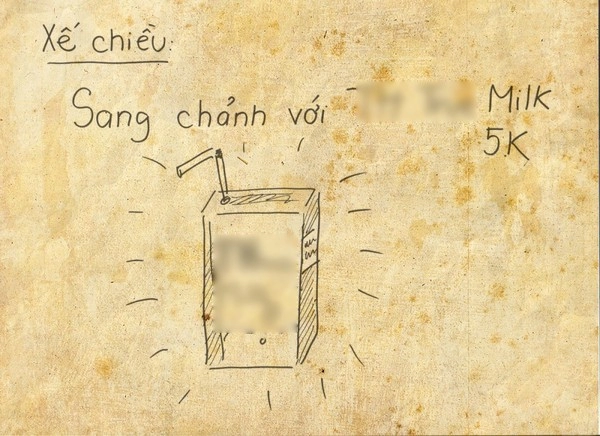 Xế chiều:
Sang chảnh với Milk
5K